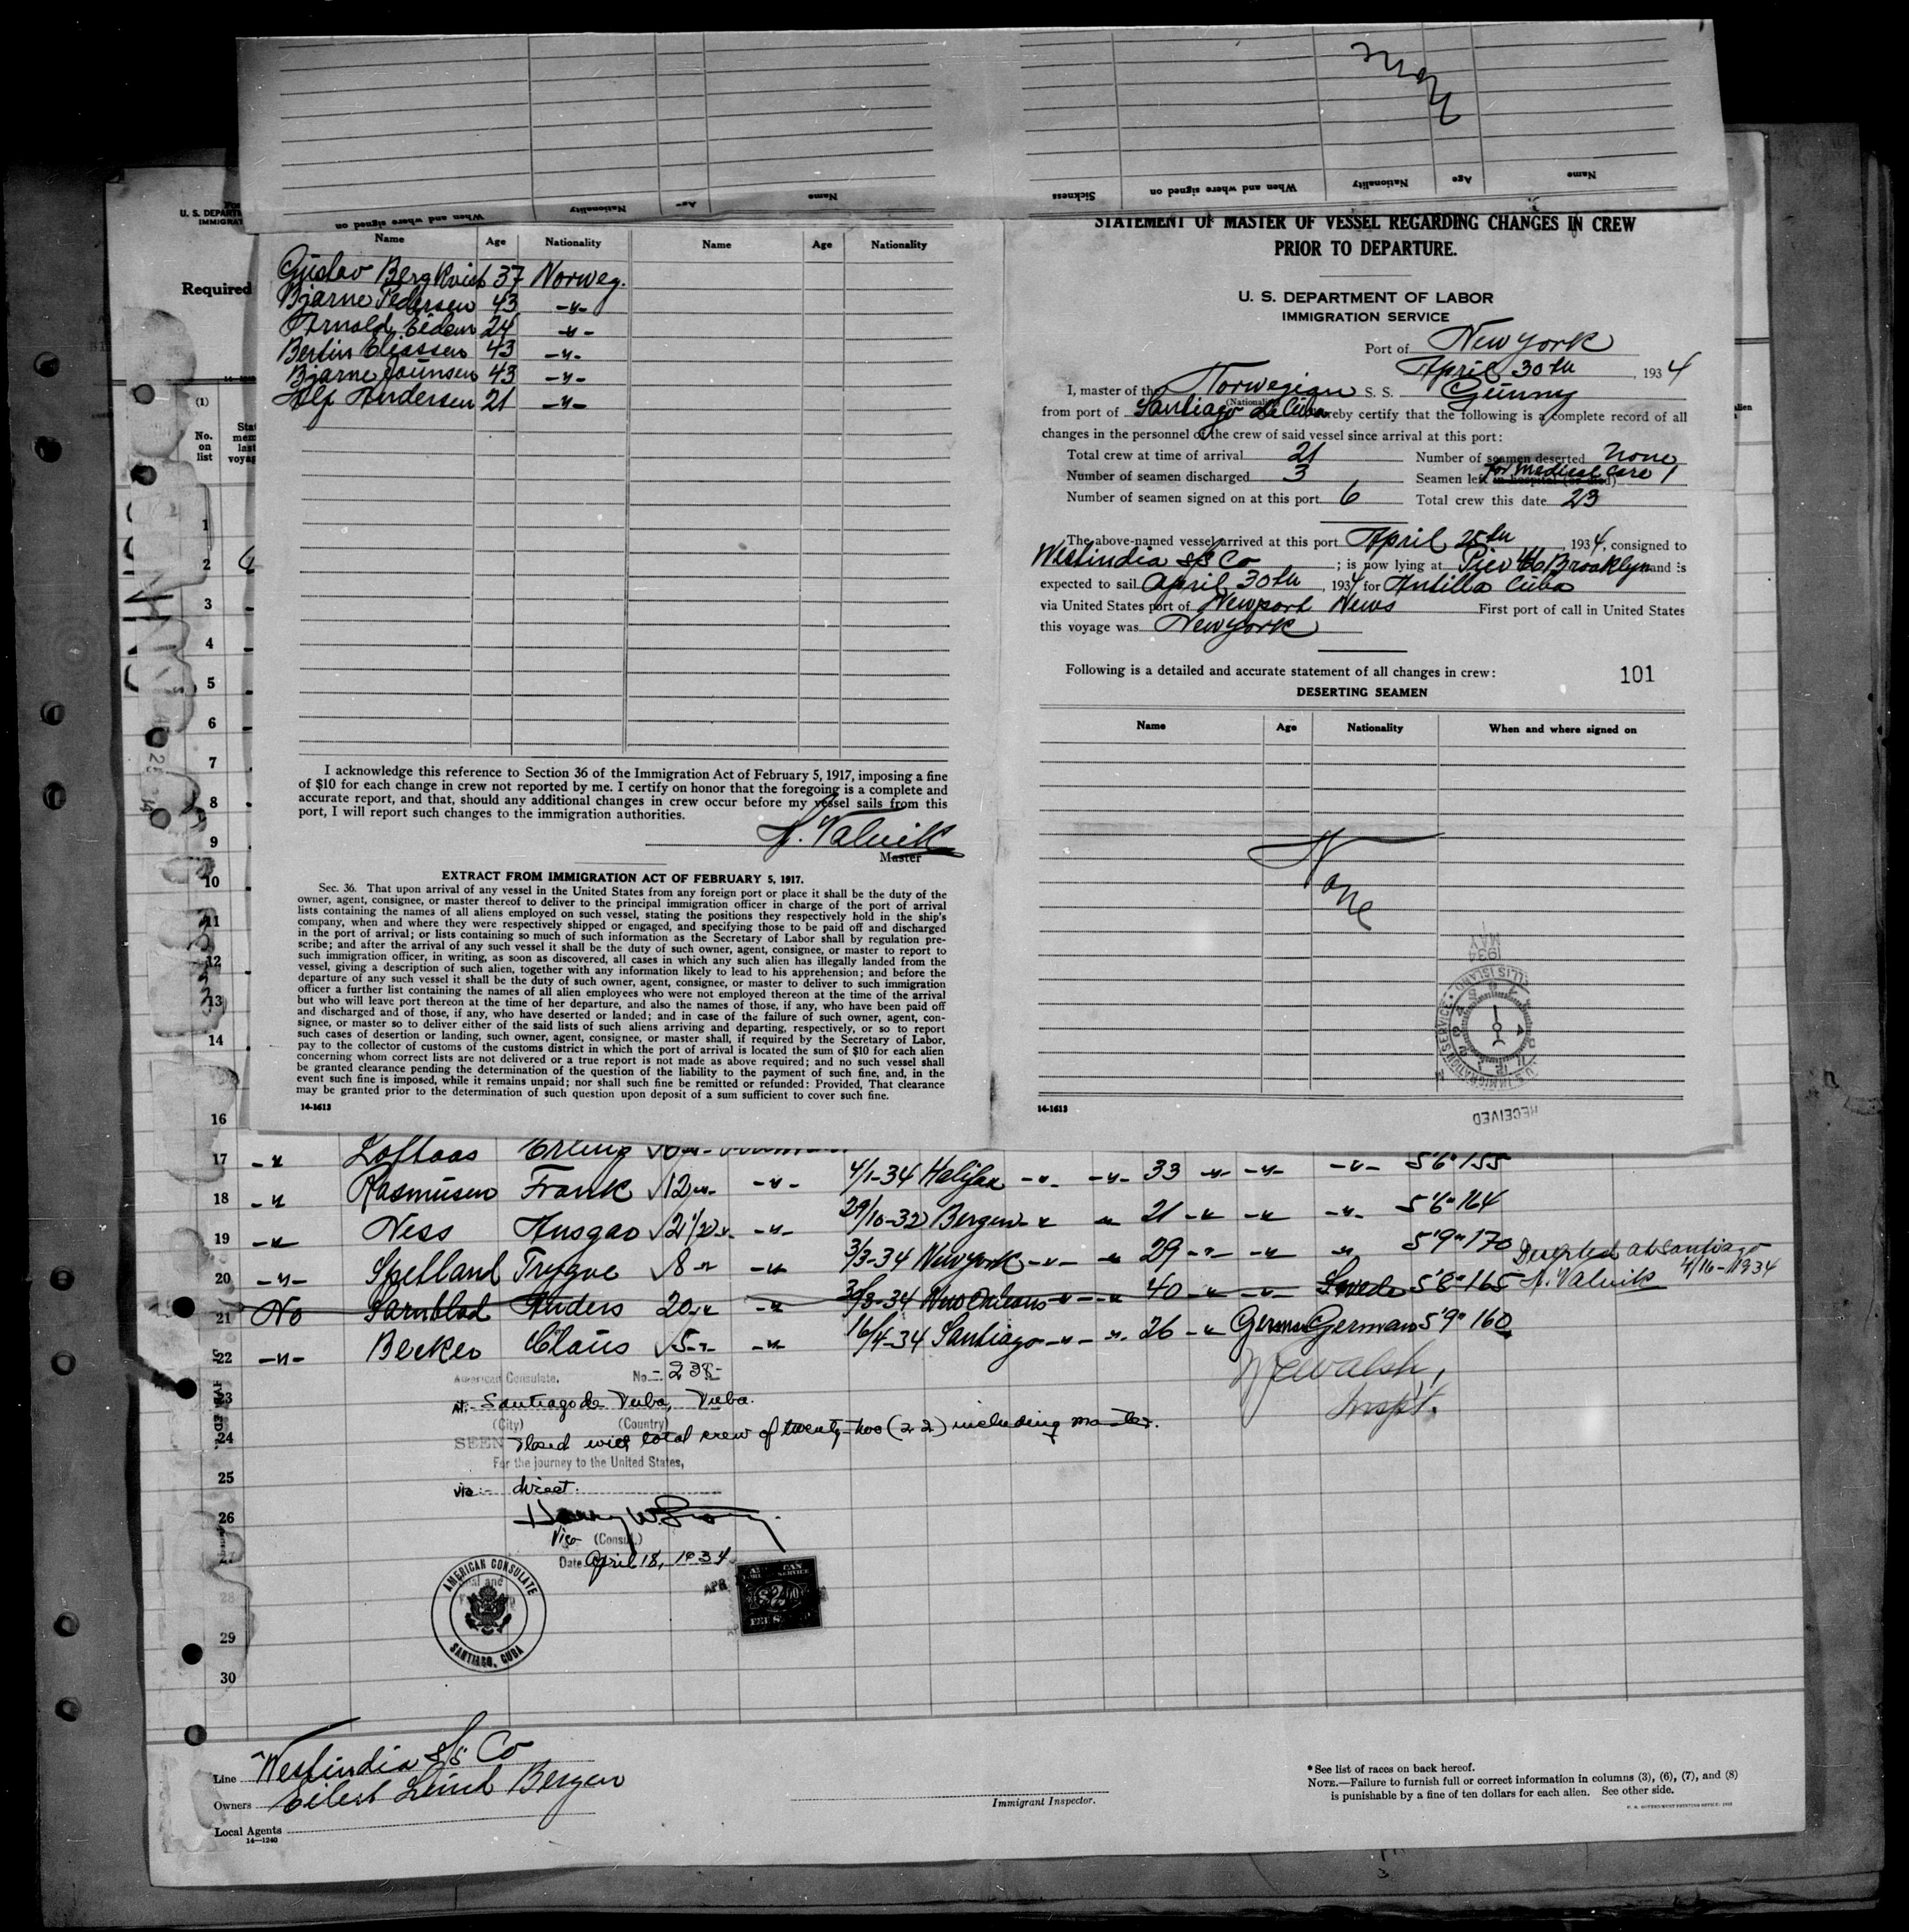 None
Sickness When and where signed on Nationality Age Name
When and where signed on Nationality Age Name
U. S. DEPART
IMMIGRAT
Required
Name Age Nationality Name Age Nationality
Gustav Bergkvist 37 Norweg.
Bjarne Pedersen 43 -"-
Arnold Eidem 24 -"-
Bertin Eliassen 43 -"-
Bjarne 43 -"-
Alf Andersen 21 -"-
I acknowledge this reference to Section 36 of the Immigration Act of February 5, 1917, imposing a fine
of $10 for each change in crew not reported by me. I certify on honor that the foregoing is a complete and
accurate report, and that, should any additional changes in crew occur before my vessel sails from this
port, I will report such changes to the immigration authorities.
N. Valvik
Master
EXTRACT FROM IMMIGRATION ACT OF FEBRUARY 5, 1917.
Sec. 36. That upon arrival of any vessel in the United States from any foreign port or place it shall be the duty of the
owner, agent, consignee, or master thereof to deliver to the principal immigration officer in charge of the port of arrival
lists containing the names of all aliens employed on such vessel, stating the positions they respectively hold in the ship's
company, when and where they were respectively shipped or engaged, and specifying those to be paid off and discharged
in the port of arrival; or lists containing so much of such information as the Secretary of Labor shall by regulation pre-
scribe; and after the arrival of any such vessel it shall be the duty of such owner, agent, consignee, or master to report to
such immigration officer, in writing, as soon as discovered, all cases in which any such alien has illegally landed from the
vessel, giving a description of such alien, together with any information likely to lead to his apprehension; and before the
departure of any such vessel it shall be the duty of such owner, agent, consignee, or master to deliver to such immigration
officer a further list containing the names of all alien employees who were not employed thereon at the time of the arrival
but who will leave port thereon at the time of her departure, and also the names of those, if any, who have been paid off
and discharged and of those, if any, who have deserted or landed; and in case of the failure of such owner, agent, con-
signee, or master so to deliver either of the said lists of such aliens arriving and departing, respectively, or so to report
such cases of desertion or landing, such owner, agent, consignee, or master shall, if required by the Secretary of Labor,
pay to the collector of customs of the customs district in which the port of arrival is located the sum of $10 for each alien
concerning whom correct lists are not delivered or a true report is not made as above required; and no such vessel shall
be granted clearance pending the determination of the question of the liability to the payment of such fine, and, in the
event such fine is imposed, while it remains unpaid; nor shall such fine be remitted or refunded: Provided, That clearance
may be granted prior to the determination of such question upon deposit of a sum sufficient to cover such fine.
14-1613
STATEMENT OF MASTER OF VESSEL REGARDING CHANGES IN CREW
PRIOR TO DEPARTURE.
U. S. DEPARTMENT OF LABOR
IMMIGRATION SERVICE
Port of New York
April 30th, 1934
I, master of the Norwegian S. S. Gunny
(Nationality)
from port of Santiago de Cuba hereby certify that the following is a complete record of all
changes in the personnel of the crew of said vessel since arrival at this port:
Total crew at time of arrival 21 Number of seamen deserted None
Number of seamen discharged 3 Seamen left in hospital (or died) for medical care 1
Number of seamen signed on at this port 6 Total crew this date 23
The above-named vessel arrived at this port April 25th, 1934, consigned to
Westindia S/S Co; is now lying at Pier Brooklyn and is
expected to sail April 30th, 1934 for Antilla Cuba
via United States port of Newport News First port of call in United States
this voyage was New York
Following is a detailed and accurate statement of all changes in crew:
101
DESERTING SEAMEN
Name Age Nationality When and where signed on
None
1934
MAY
ELLIS ISLAND
U. S. IMMIGRATION SERVICE
RECEIVED
14-1613
(1)
No. on list
1
2
3
4
5
6
7
8
9
10
11
12
13
14
16
17 -"- Loftaas Erling
18 -"- Rasmusen Frank 12 -"- -"- 4/1-34 Halifax -"- -"- 33 -"- -"- -"- 5'6" 155
19 -"- Ness Ansgar 2 1/2 -"- -"- 29/10-32 Bergen -"- -"- 21 -"- -"- -"- 5'6" 164
20 -"- Spetland Trygve 8 -"- -"- 3/3-34 New York -"- -"- 29 -"- -"- -"- 5'9" 170
21 No Sarnblad Anders 20 -"- -"- 30/3-34 New Orleans -"- -"- 40 -"- -"- Swede 5'8" 165
Deserted at Santiago
4/16-1934
N. Valvik
22 -"- Becker Claus 5 -"- -"- 16/4-34 Santiago -"- -"- 26 -"- German German 5'9" 160
23
24
25
26
27
28
29
30
Walsh,
Inspt.
American Consulate. No. 238
At Santiago de Cuba, Cuba.
(City) (Country)
SEEN closed with total crew of twenty-two (22) including master.
For the journey to the United States,
via direct.
Vice (Consul)
Date April 18, 1934
AMERICAN CONSULATE
SANTIAGO, CUBA
APR
$2.00
Line Westindia S/S Co
Owners Eilert Lund Bergen
Local Agents
14—1240
Immigrant Inspector.
*See list of races on back hereof.
NOTE.—Failure to furnish full or correct information in columns (3), (6), (7), and (8)
is punishable by a fine of ten dollars for each alien. See other side.
U. S. GOVERNMENT PRINTING OFFICE: 1932